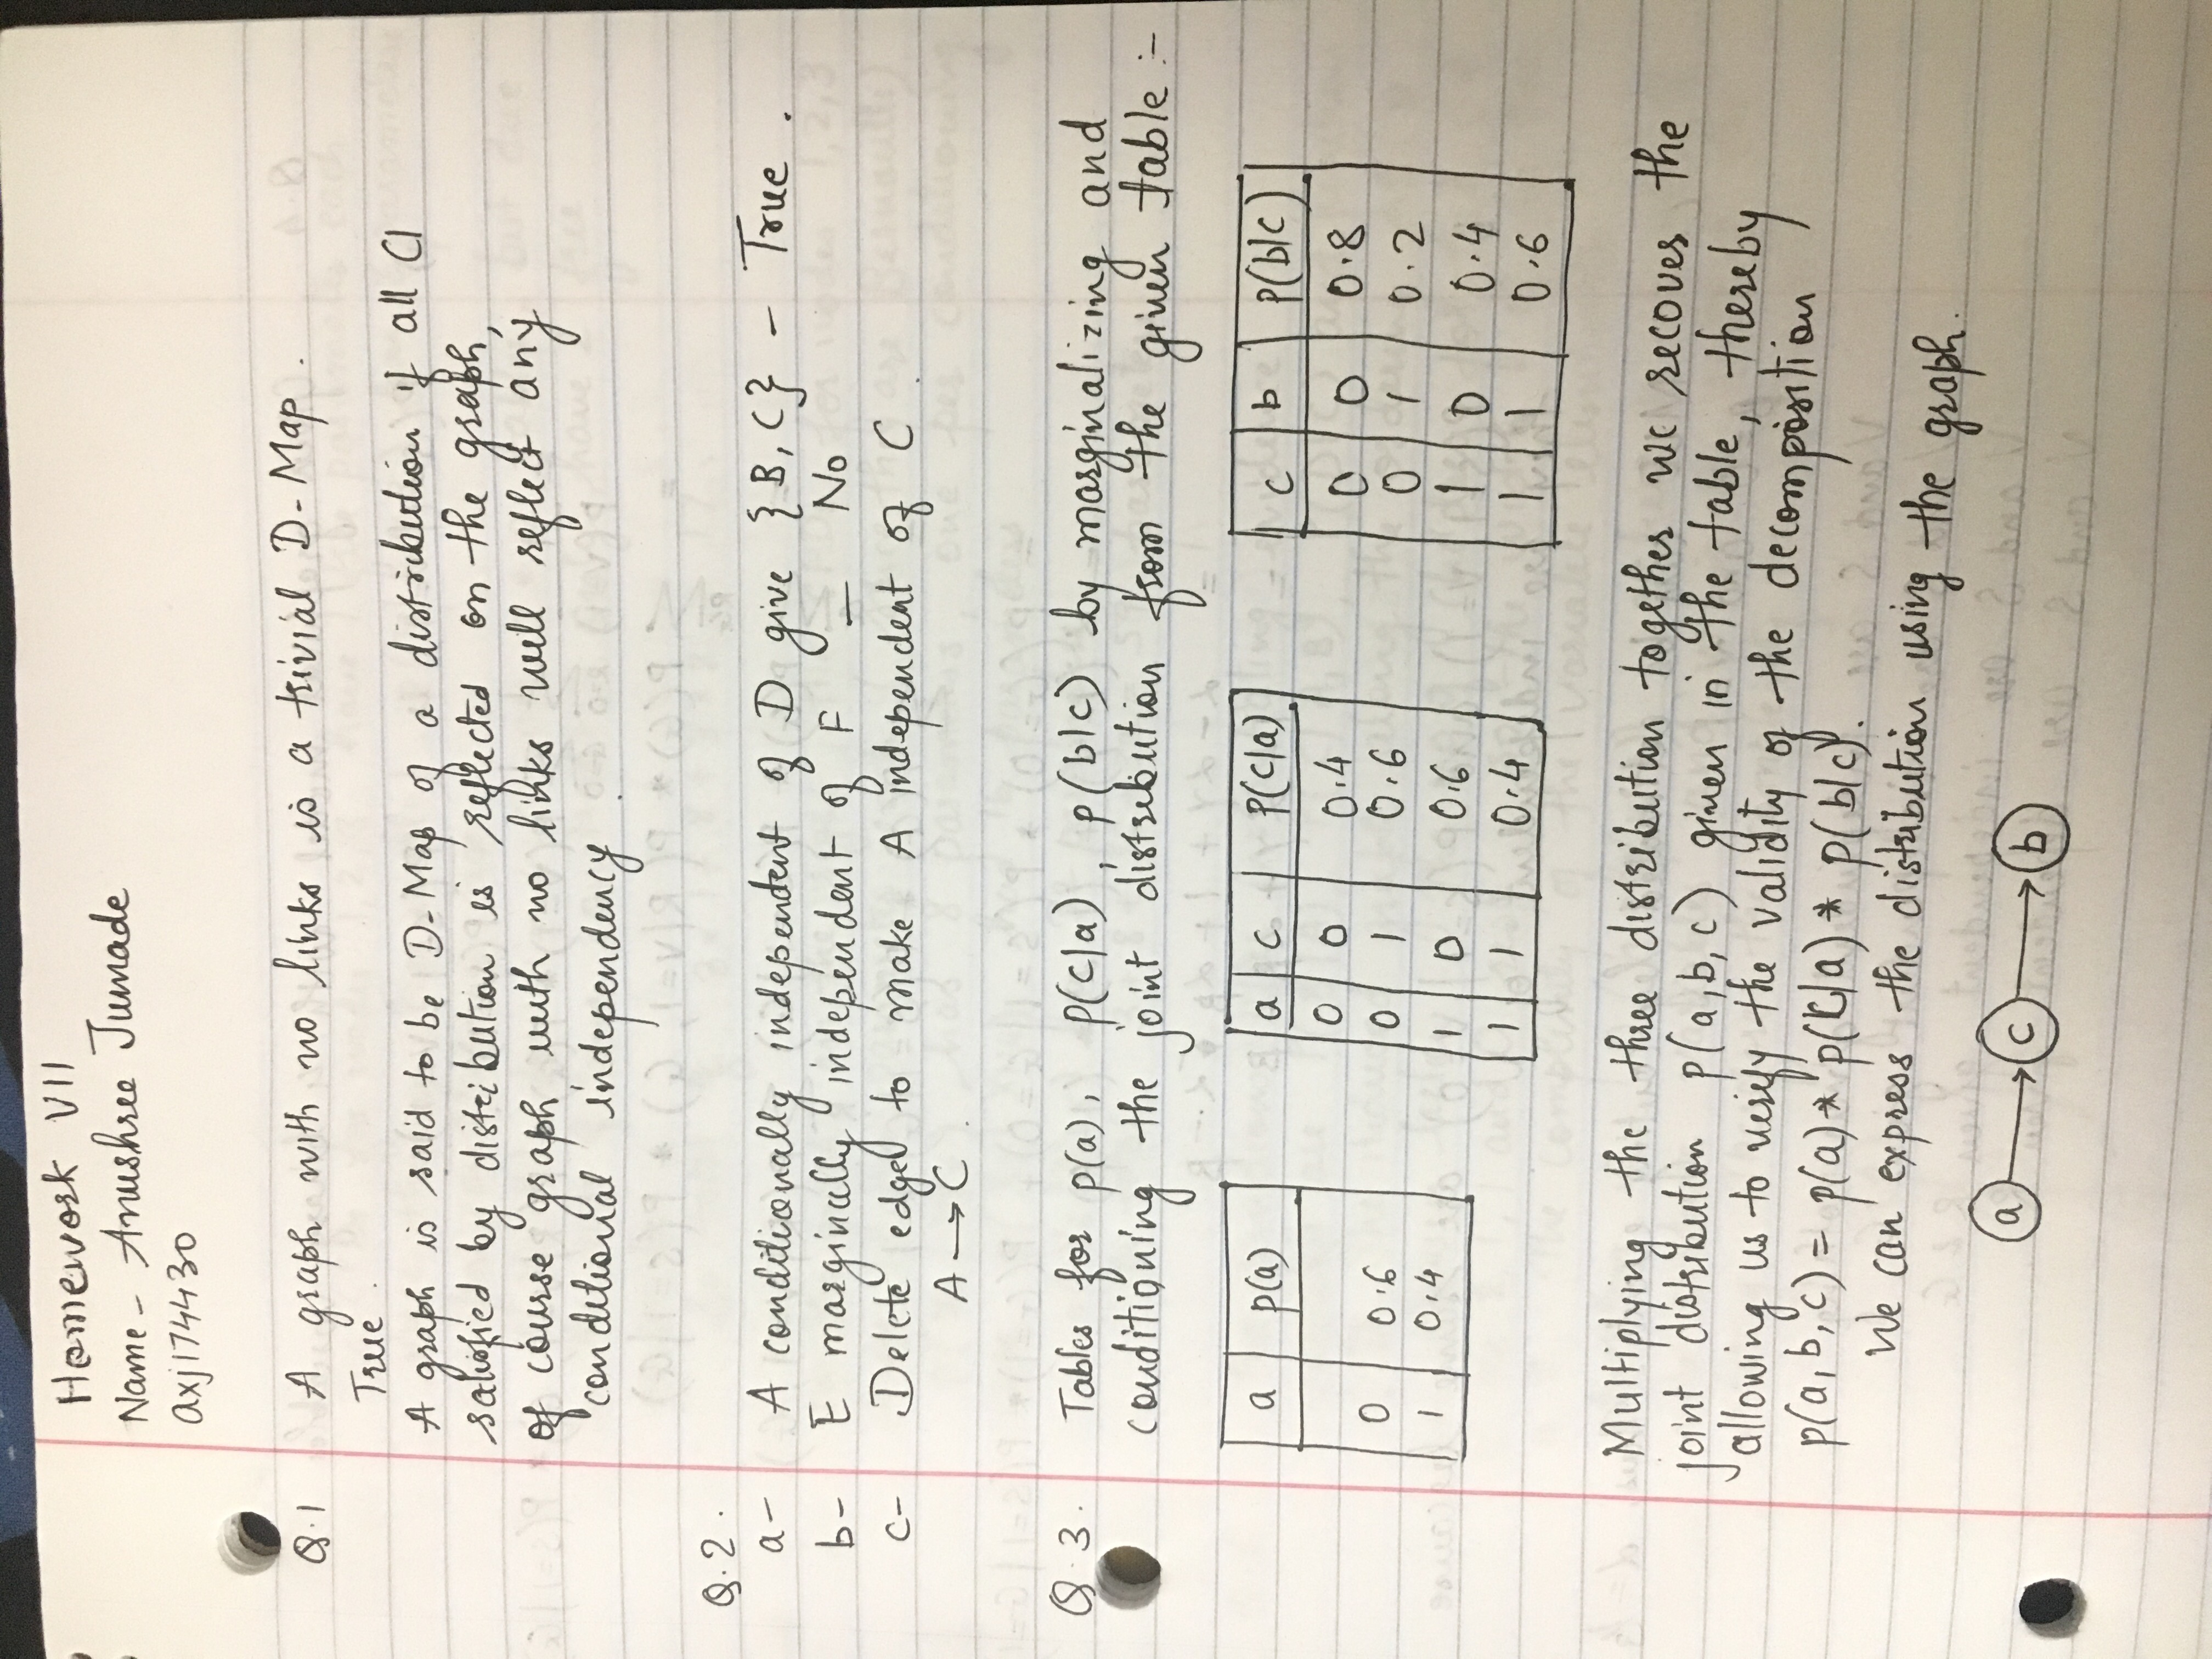 Homework VII
Name - Anushree Jumade
axj174430
Q.1 A graph with no links is a trivial D-Map.
True.
A graph is said to be D-Map of a distribution if all CI
satisfied by distribution is reflected on the graph,
of course graph with no links will reflect any
conditional independency.
Q.2.
a- A conditionally independent of D give {B, C} - True.
b- E marginally independent of F - No
c- Delete edge to make A independent of C.
A → C.
Q.3. Tables for p(a), p(c|a), p(b|c) by marginalizing and
conditioning the joint distribution from the given table :-
a p(a)
0 0.6
1 0.4
a c p(c|a)
0 0 0.4
0 1 0.6
1 0 0.6
1 1 0.4
c b p(b|c)
0 0 0.8
0 1 0.2
1 0 0.4
1 1 0.6
Multiplying the three distribution together we recover the
joint distribution p(a,b,c) given in the table, thereby
allowing us to verify the validity of the decomposition
p(a,b,c) = p(a)* p(c|a) * p(b|c).
We can express the distribution using the graph.
a → c → b